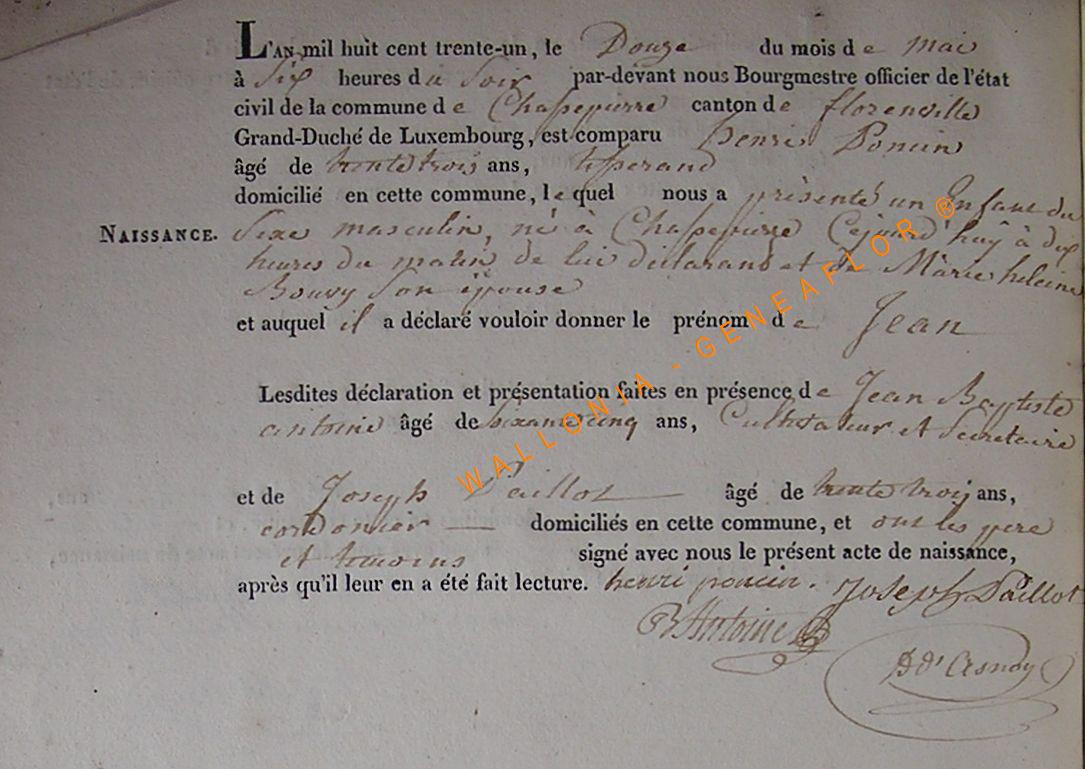 L'AN mil huit cent trente-un, le Douze du mois de mai
à Six heures du Soir par-devant nous Bourgmestre officier de l'état
civil de la commune de Chassepierre canton de florenville
Grand-Duché de Luxembourg, est comparu henri Poncin
âgé de trente trois ans, tisserand
domicilié en cette commune, lequel nous a présenté un Enfant du
NAISSANCE. Sexe masculin, né à Chassepierre Cejourd'huy à dix
heures du matin de lui déclarant et de Marie heleine
Bouvy Son épouse
et auquel il a déclaré vouloir donner le prénom de Jean
Lesdites déclaration et présentation faites en présence de Jean Baptiste
antoine âgé de ans, Cultivateur et Secretaire
et de Joseph Paillot âgé de trente trois ans,
cordonier domiciliés en cette commune, et ont les pere
et temoins signé avec nous le présent acte de naissance,
après qu'il leur en a été fait lecture. henri poncin. Joseph Paillot
B Antoine
WALLONIA - GENEAFLOR ®